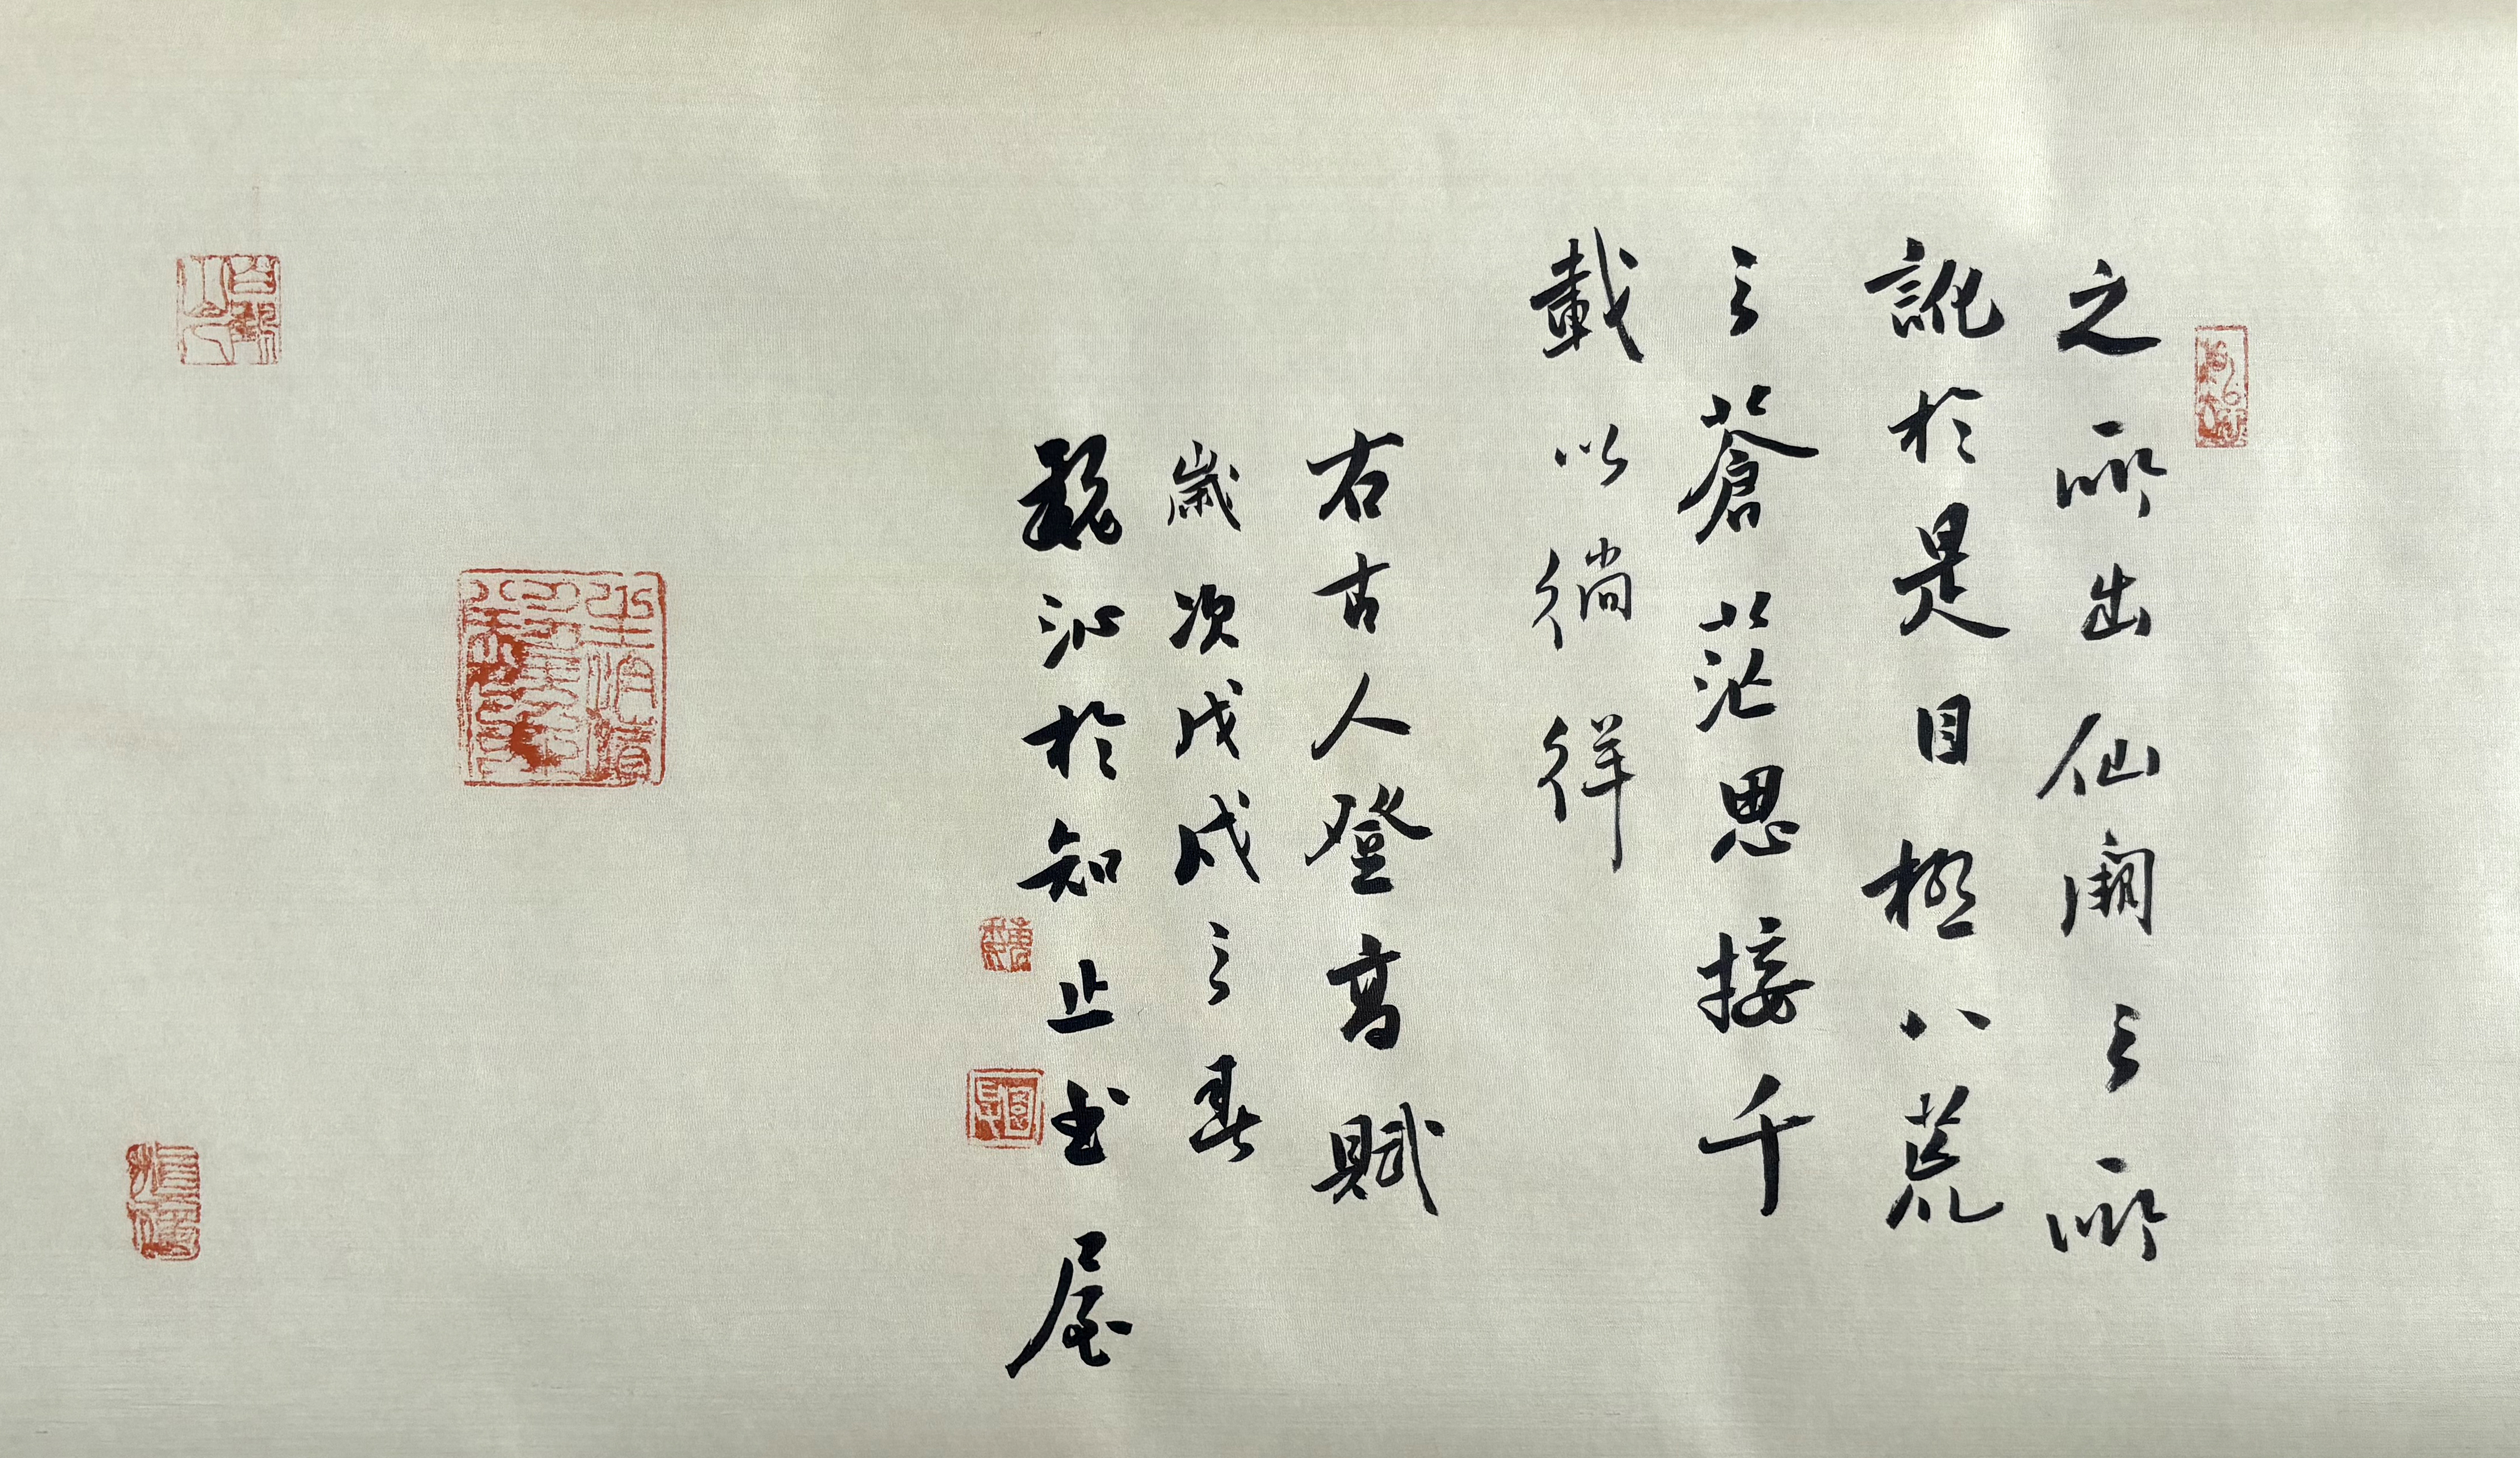 之所出仙閣之所
訛於是目極八荒
之蒼茫思接千
載以徜徉
右古人登高賦
歲次戊戌之春
魏沁於知止書屋